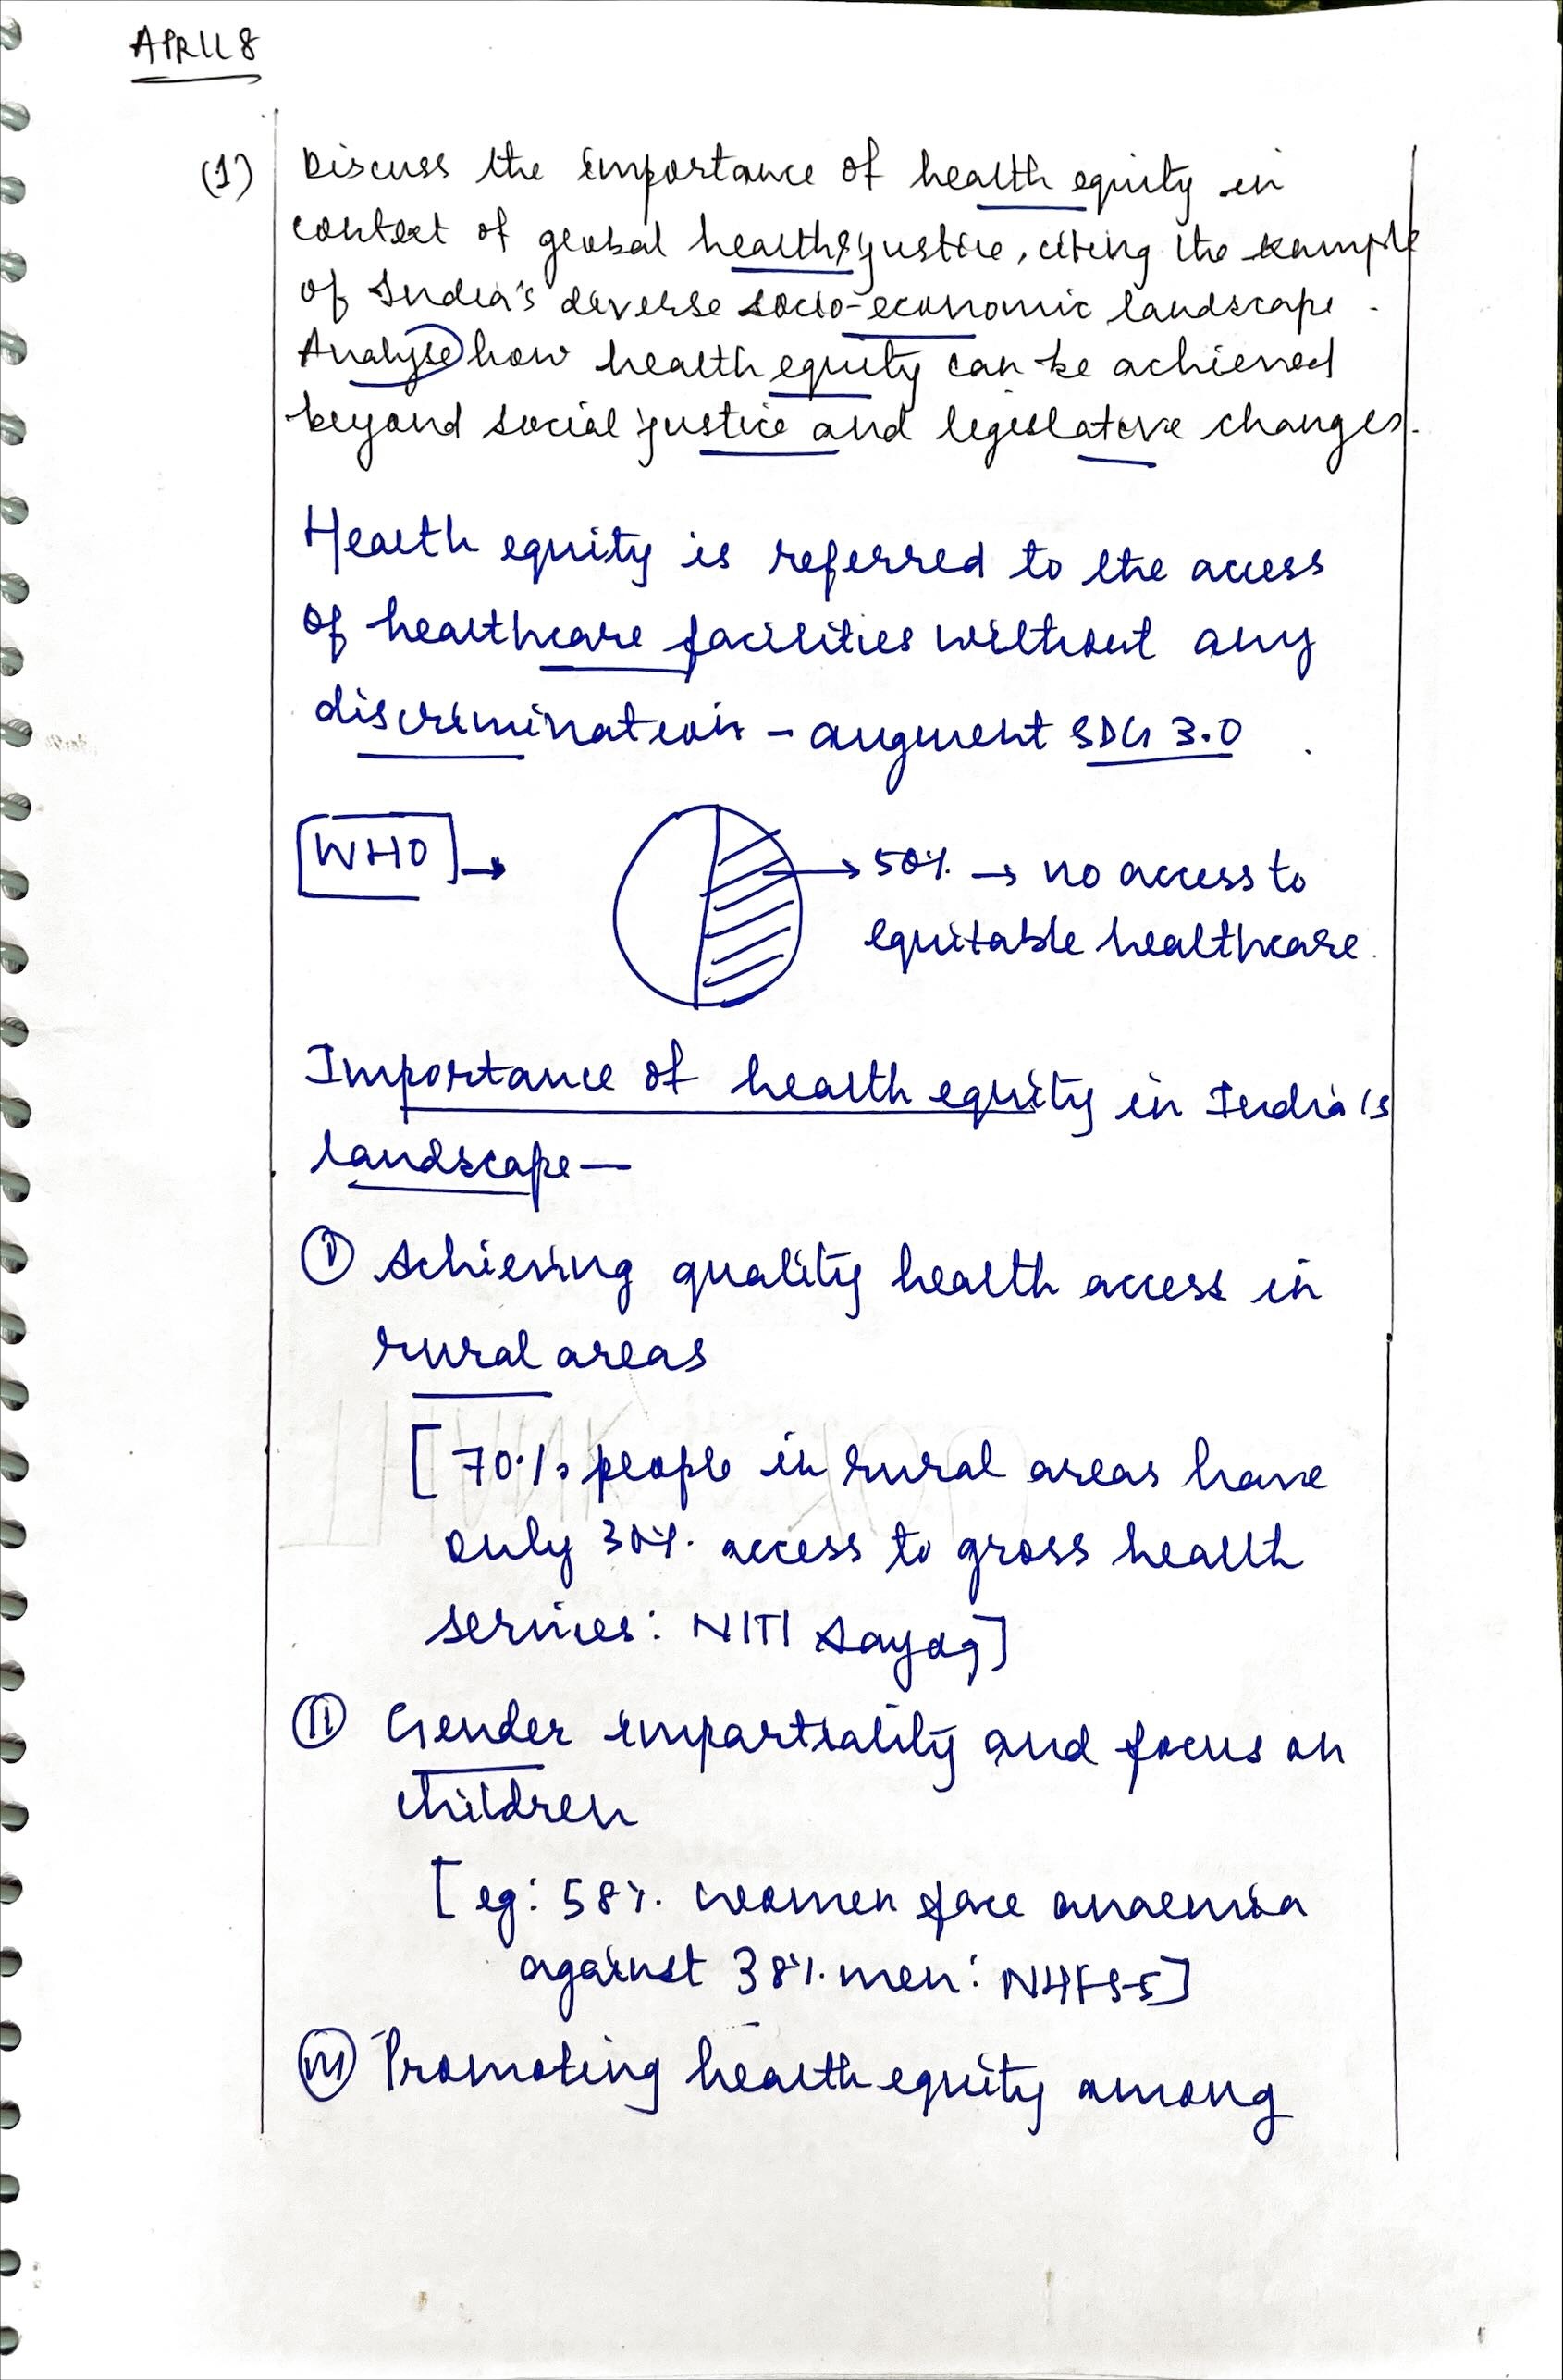 APRIL 8
(1) Discuss the importance of health equity in
context of global health & justice, citing the example
of India's diverse socio-economic landscape.
Analyse how health equity can be achieved
beyond social justice and legislative changes.
Health equity is referred to the access
of healthcare facilities without any
discrimination - augment SDG 3.0
WHO → → 50% → no access to
equitable healthcare.
Importance of health equity in India's
landscape —
(I) Achieving quality health access in
rural areas
[70% people in rural areas have
only 30% access to gross health
services: NITI Aayog]
(II) Gender impartiality and focus on
children
[eg: 58% women face anaemia
against 38% men: NHFS-5]
(III) Promoting health equity among